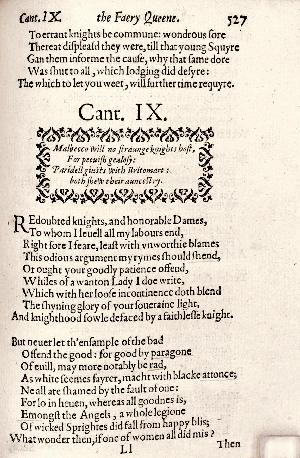 Cant. IX. the Faery Queene. 527
To errant knights be commune: wondrous sore
Thereat displeasd they were, till that young Squyre
Gan them informe the cause, why that same dore
Was shut to all, which lodging did desyre:
The which to let you weet, will further time requyre.
Cant. IX.
Malbecco will no straunge knights host,
For peeuish gealosy:
Paridell giusts with Britomart:
both shew their auncestry.
REdoubted knights, and honorable Dames,
To whom I leuell all my labours end,
Right sore I feare, least with vnworthie blames
This odious argument my rymes should shend,
Or ought your goodly patience offend,
Whiles of a wanton Lady I doe write,
Which with her loose incontinence doth blend
The shyning glory of your soueraine light,
And knighthood fowle defaced by a faithlesse knight.
But neuer let th'ensample of the bad
Offend the good: for good by paragone
Of euill, may more notably be rad,
As white seemes fayrer, macht with blacke attonce;
Ne all are shamed by the fault of one:
For lo in heuen, whereas all goodnes is,
Emongst the Angels, a whole legione
Of wicked Sprightes did fall from happy blis;
What wonder then, if one of women all did mis?
Ll Then